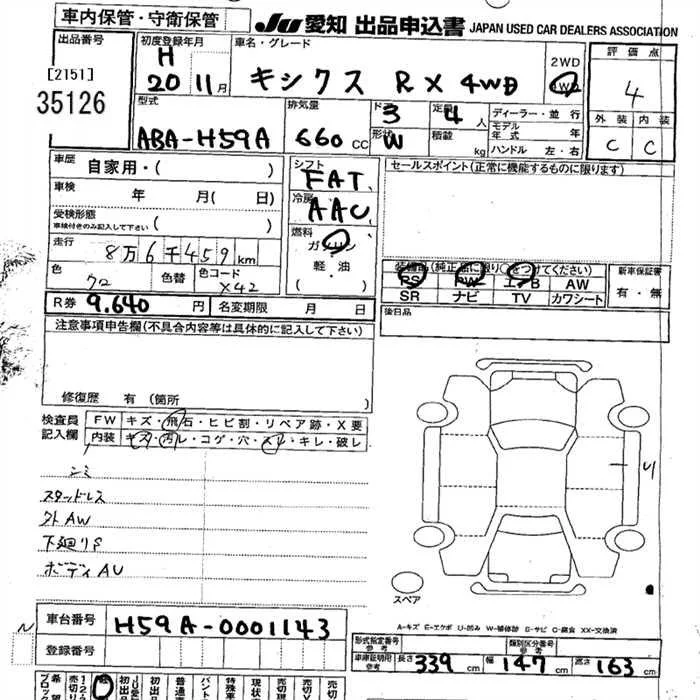 車内保管・守衛保管
JU 愛知 出品申込書 JAPAN USED CAR DEALERS ASSOCIATION
出品番号
[2151]
35126
初度登録年月
H
20 11 月
車名・グレード
キシクス RX 4WD
2WD
4WD
評価点
4
外装 内装
C C
型式
ABA-H59A
排気量
660 CC
ドア
3
形状
W
定員
4 人
積載
kg
ディーラー・並行
モデル年式 年
ハンドル 左・右
車歴 自家用・( )
車検 年 月( 日)
受検形態
車検付きのみ記入して下さい ( )
走行 8万6千459km
色 クロ 色替 色コード X42
シフト
FAT
冷房
AAC
燃料
ガソリン
軽・油
( )
セールスポイント(正常に機能するものに限ります)
装備品(純正品に限り○をつけてください)
PS PW エアB AW
SR ナビ TV カワシート
新車保証書
有・無
後日品
R券 9.640 円 名変期限 月 日
注意事項申告欄(不具合内容等は具体的に記入して下さい)
修復歴 有 (箇所 )
検査員記入欄
FW キズ・飛石・ヒビ割・リペア跡・X要
内装 キズ・汚レ・コゲ・穴・スレ・キレ・破レ
シミ
スタッドレス
外AW
下廻りS
ボディAU
U
スペア
A-キズ E-エクボ U-凹み W-補修跡 S-サビ C-腐食 XX-交換済
N
車台番号 H59A-0001143
登録番号
形式指定番号
参考
類別区分番号
参考
車庫証明用
参考
長さ 339 cm 幅 147 cm 高さ 163 cm